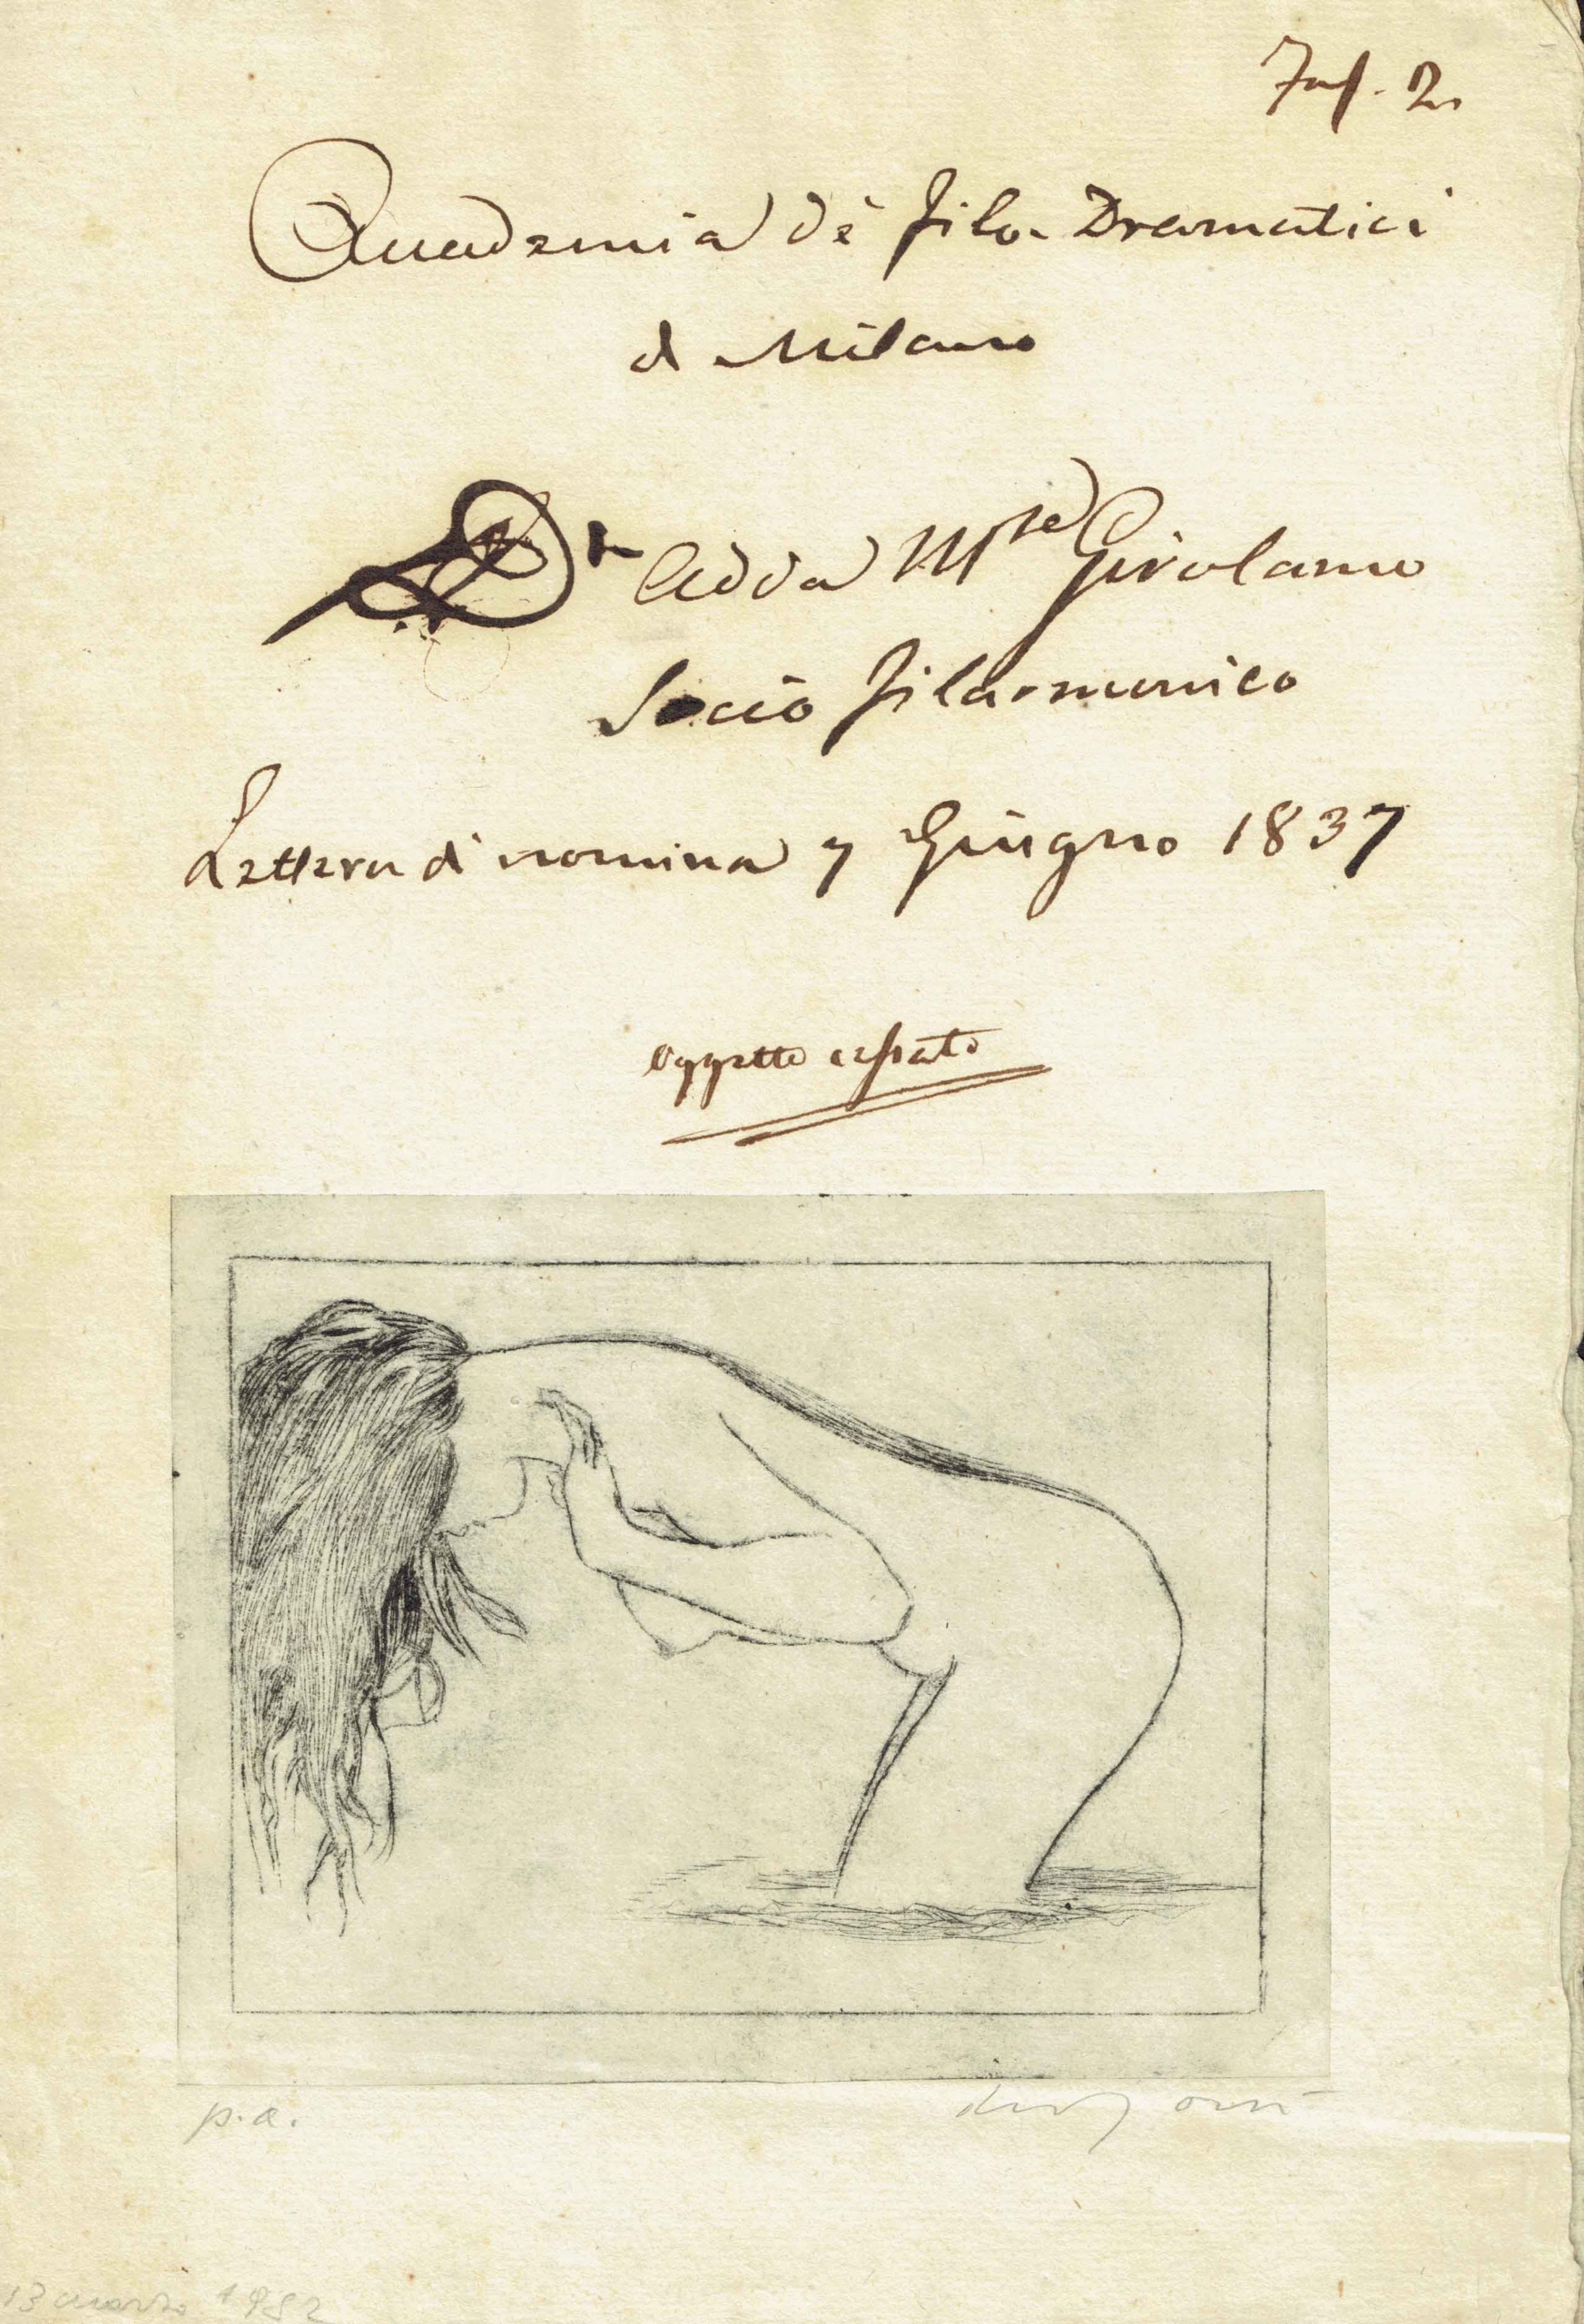 Fasc. 2.
Accademia dè Filo-Dramatici
di Milano
Adda M.se Girolamo
Socio Filarmonico
Lettera di nomina 7 Giugno 1837
oggetto cessato
p.a.
13 marzo 1982